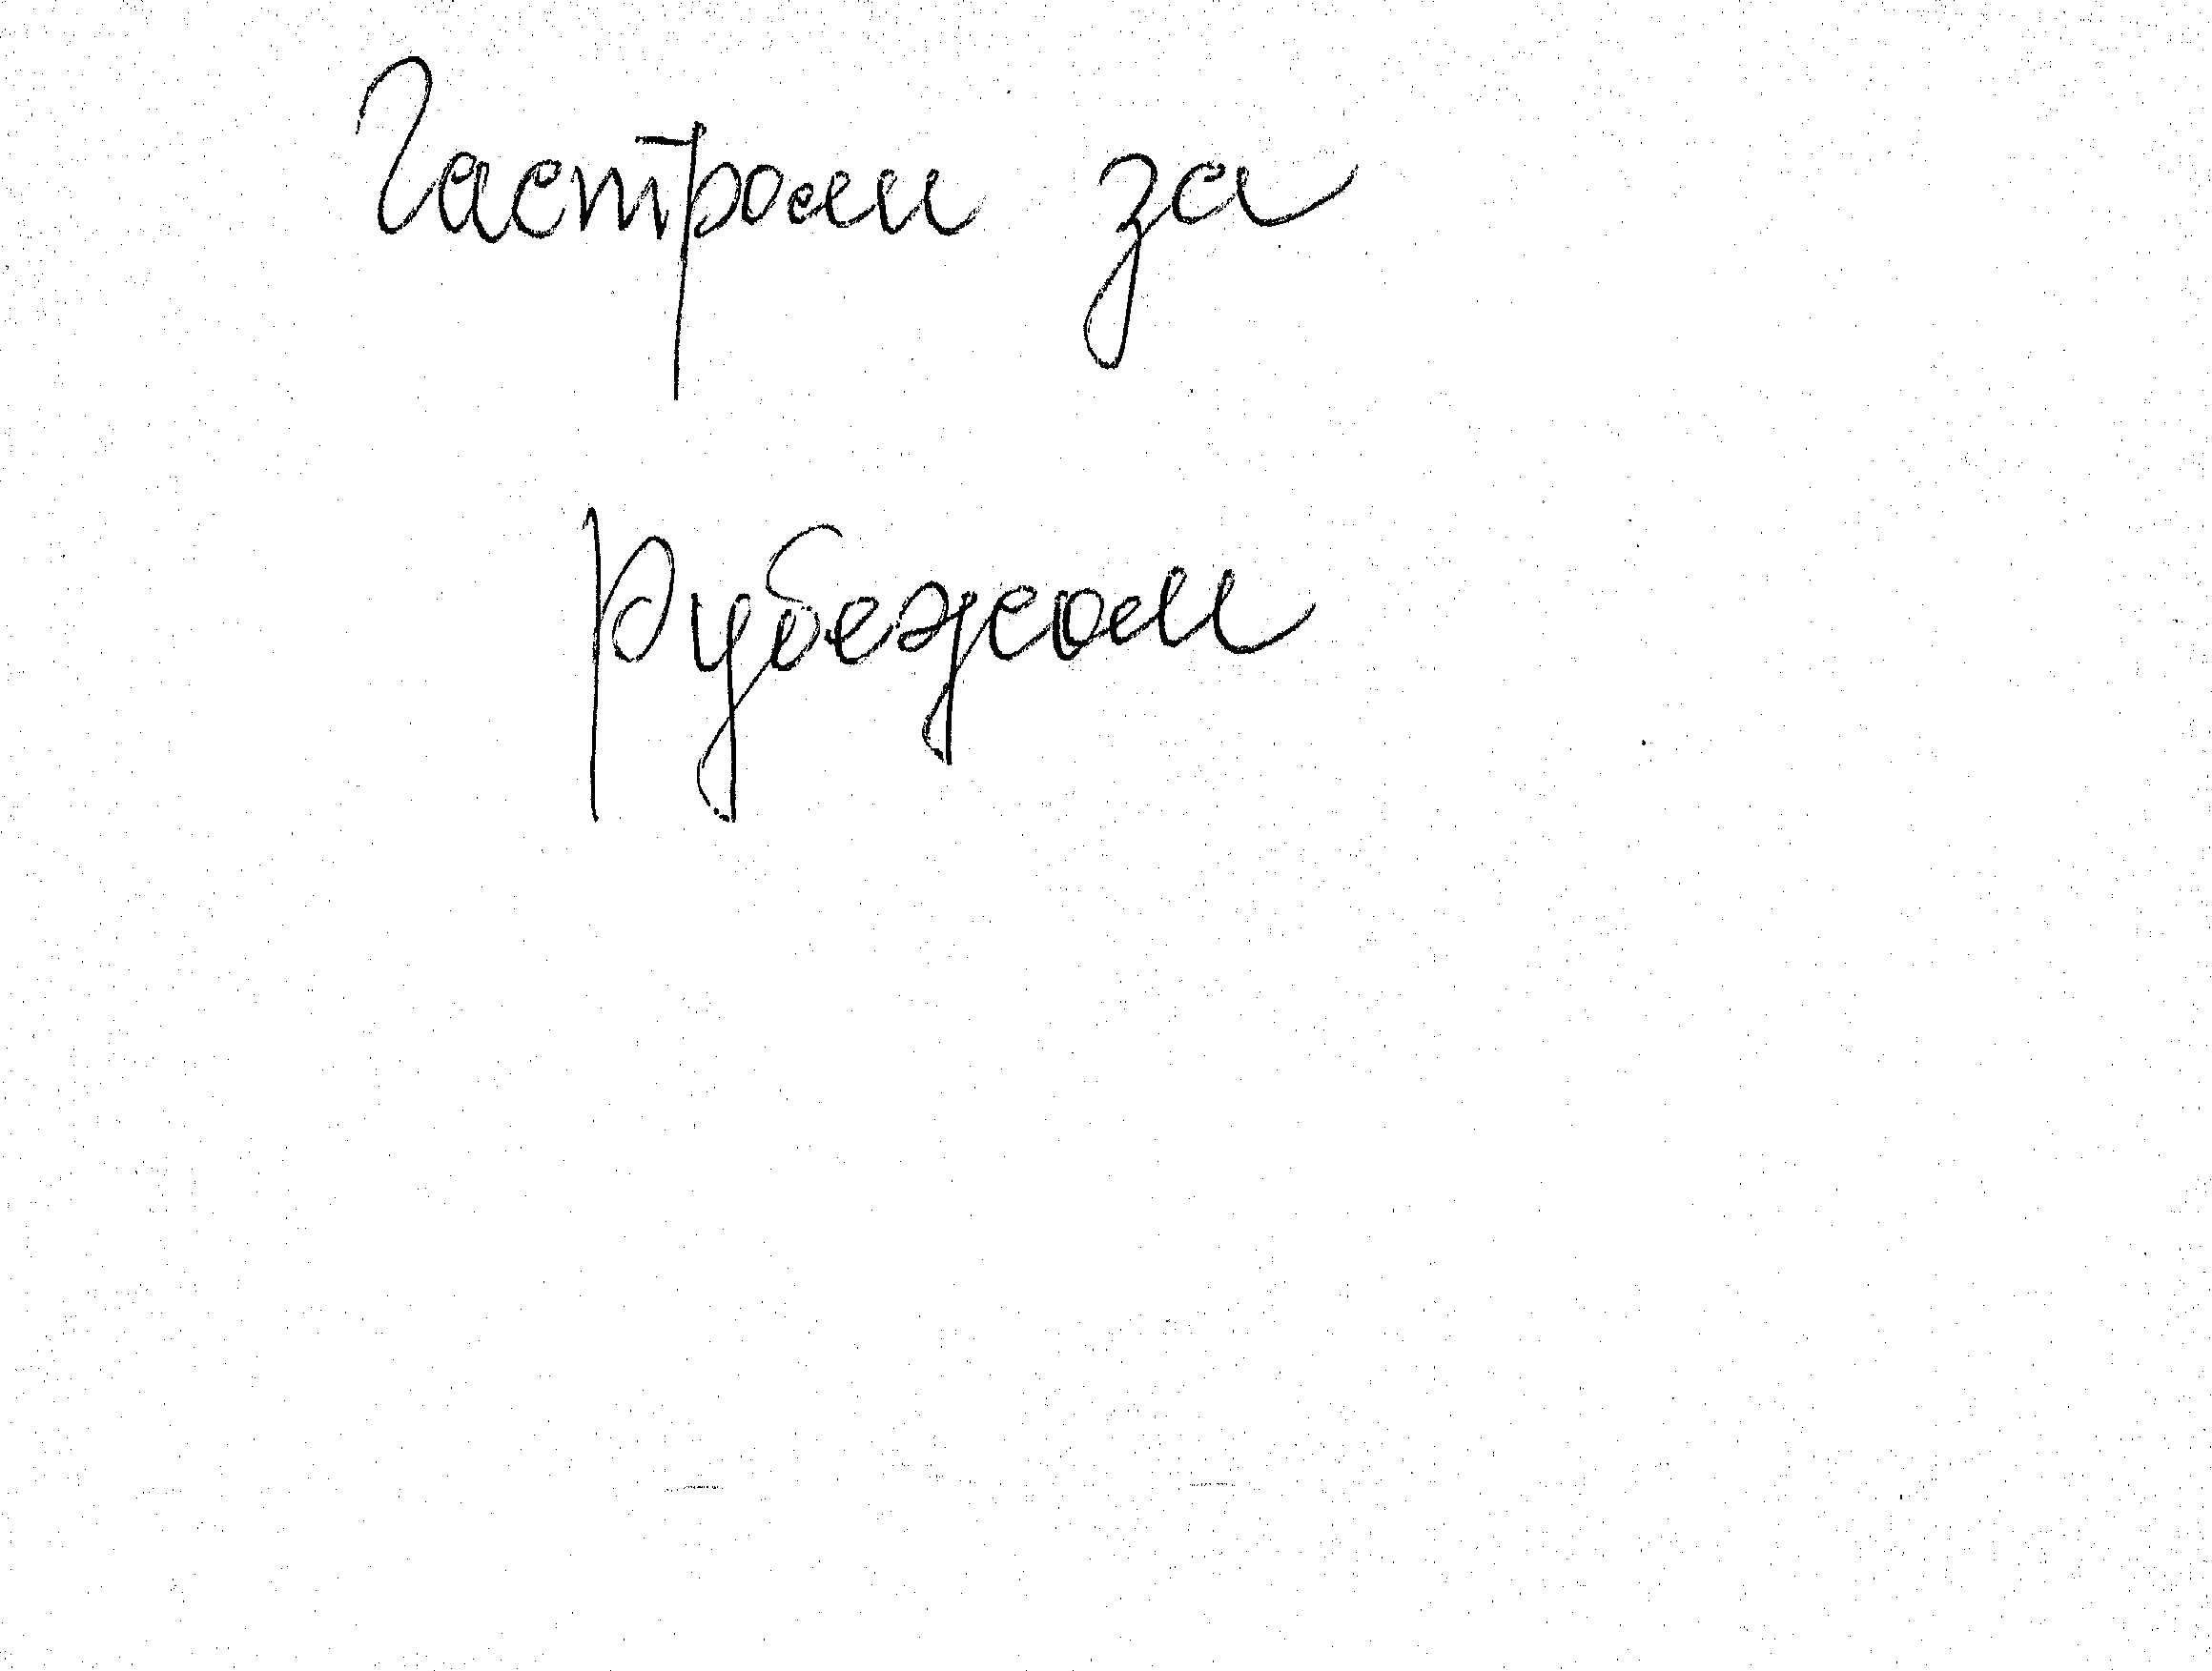 Гастроли за
Рубежом